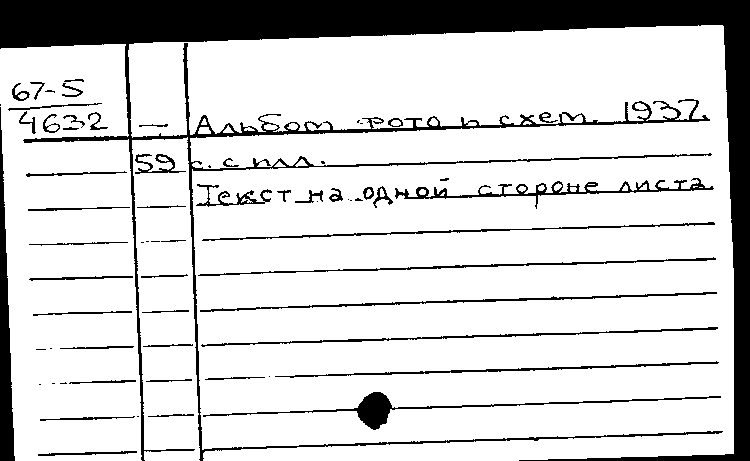 67-5
4632 — Альбом фото и схем. 1937.
59 с. с илл.
Текст на одной стороне листа.